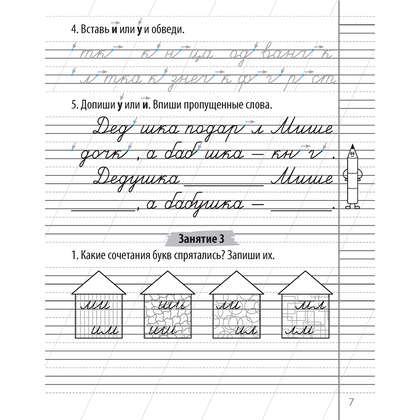 4. Вставь и или у и обведи.
тк к н ца од ванч к
л тка к знеч к ф г р ст
5. Допиши у или и. Впиши пропущенные слова.
Дед шка подар л Мише
дочк , а баб шка – кн г .
Дедушка __________ Мише
________, а бабушка – ________.
Занятие 3
1. Какие сочетания букв спрятались? Запиши их.
ми ши ли
им иш ил
7